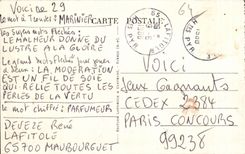 Voici No 29
Le mot à trouver : MARINIER
CARTE POSTALE
Les Super mots fléchés :
LE MALHEUR DONNE DU
LUSTRE A LA GLOIRE
Le grand mots fléchés pour jouer
à deux : LA MODERATION
EST UN FIL DE SOIE
QUI RELIE TOUTES LES
PERLES DE LA VERTU
Le mot chiffré : PARFUMEUR
DEVEZE René
LAFITOLE
65700 MAUBOURGUET
VOICI
Jeux Gagnants
CEDEX 2284
PARIS CONCOURS
99238